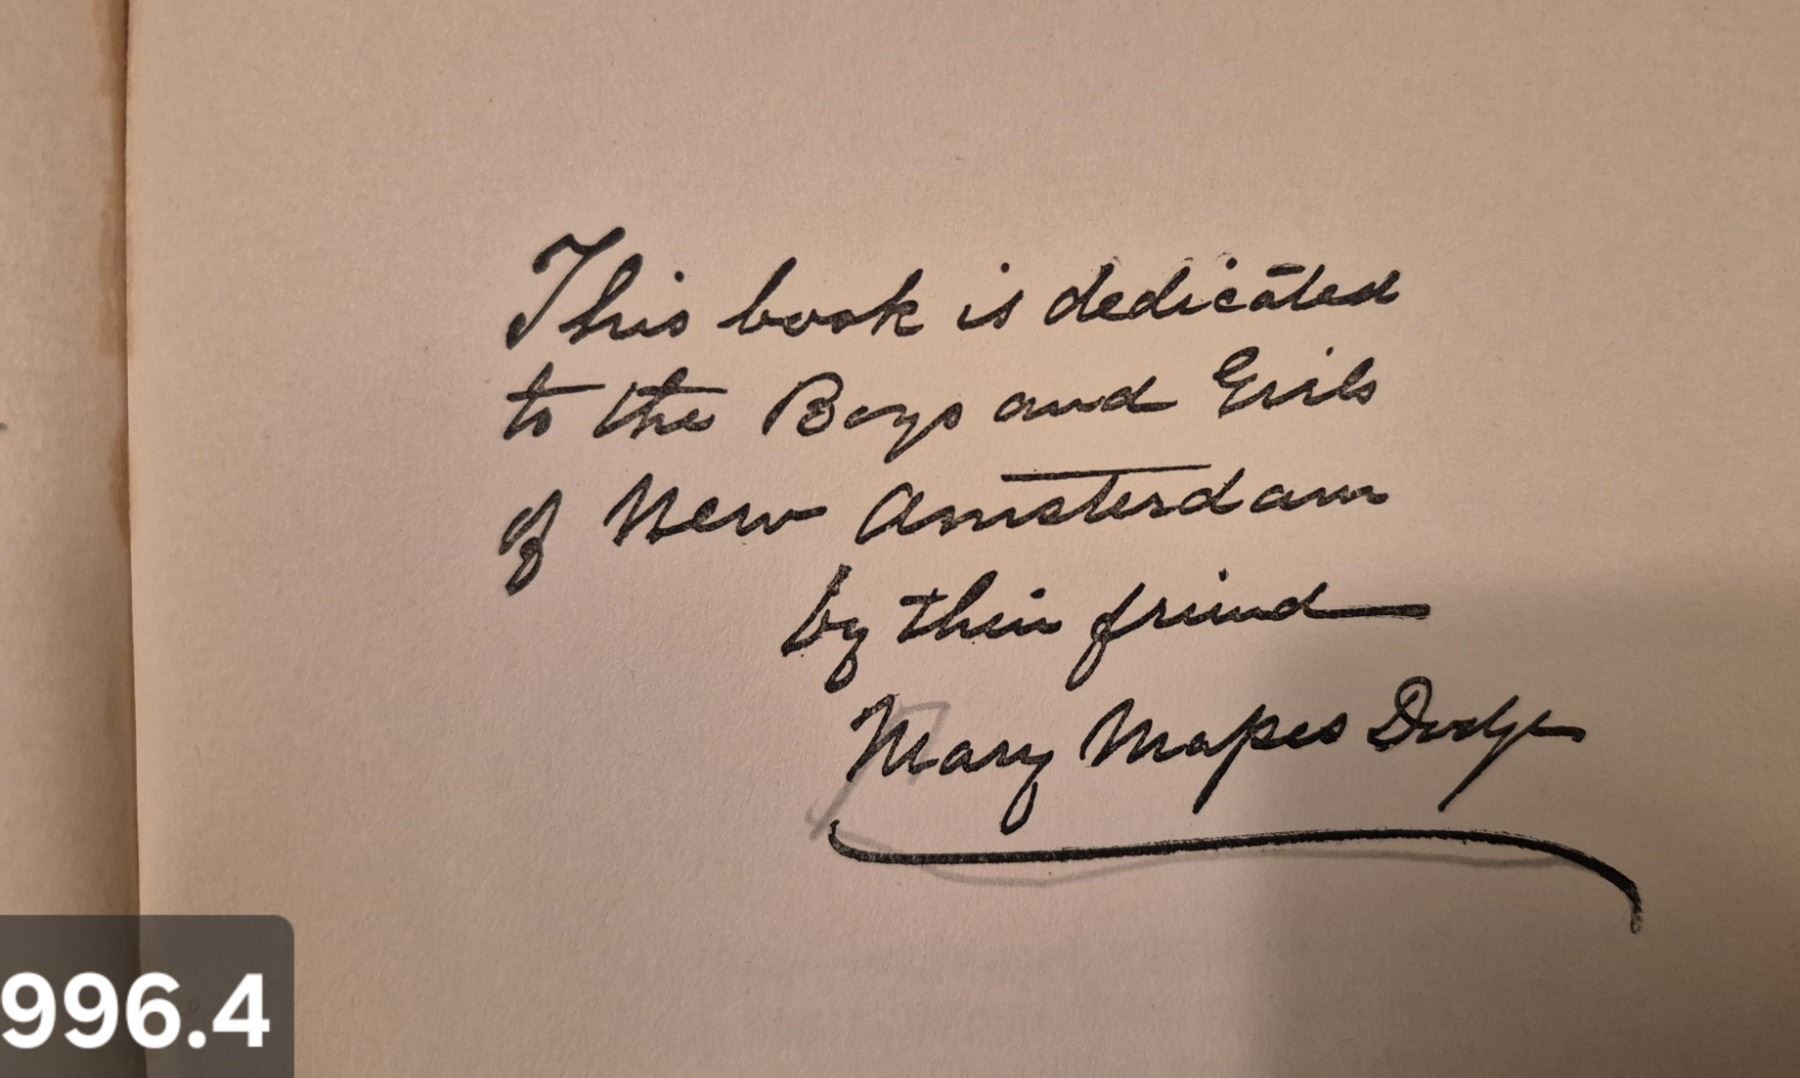 This book is dedicated
to the Boys and Girls
of New Amsterdam
by their friend
Mary Mapes Dodge
996.4